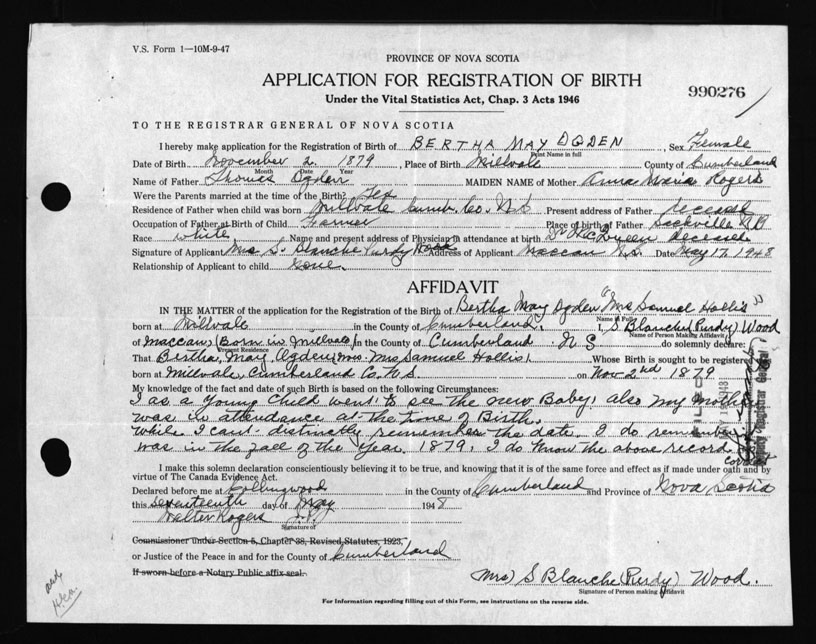 V.S. Form 1—10M-9-47
PROVINCE OF NOVA SCOTIA
APPLICATION FOR REGISTRATION OF BIRTH
990276
Under the Vital Statistics Act, Chap. 3 Acts 1946
TO THE REGISTRAR GENERAL OF NOVA SCOTIA
I hereby make application for the Registration of Birth of BERTHA MAY OGDEN, Sex Female
Print Name in full
Date of Birth November 2 1879, Place of Birth Millvale County of Cumberland
Month Date Year
Name of Father Thomas Ogden MAIDEN NAME of Mother Anna Maria Rogers
Were the Parents married at the time of Birth? Yes
Residence of Father when child was born Millvale Cumb. Co. N.S Present address of Father deceased
Occupation of Father at Birth of Child Farmer Place of birth of Father Sackville N B
Race white Name and present address of Physician in attendance at birth Dr McQueen deceased
Signature of Applicant Mrs S. Blanche Purdy Wood Address of Applicant Maccan N.S. Date May 17, 1948
Relationship of Applicant to child none.
AFFIDAVIT
IN THE MATTER of the application for the Registration of the Birth of Bertha May Ogden "Mrs Samuel Hollis"
Name in Full
born at Millvale in the County of Cumberland. I, S Blanche (Purdy) Wood
Name of Person Making Affidavit
of Maccan (Born in Millvale) in the County of Cumberland N S do solemnly declare:
Present Residence
That Bertha May Ogden (Mrs. Mrs Samuel Hollis) Whose Birth is sought to be registered
born at Millvale, Cumberland Co. N.S. on Nov 2nd 1879
My knowledge of the fact and date of such Birth is based on the following Circumstances:
I as a young child went to see the new Baby, also my Mother
was in attendance at the time of Birth.
While I can't distinctly remember the date. I do remember
was in the fall of the Year 1879. I do Know the above record
I make this solemn declaration conscientiously believing it to be true, and knowing that it is of the same force and effect as if made under oath and by
virtue of The Canada Evidence Act.
Declared before me at Collingwood in the County of Cumberland and Province of Nova Scotia
this seventeenth day of May 1948
Walter Rogers J.P.
Signature of
Commissioner under Section 5, Chapter 38, Revised Statutes, 1923,
or Justice of the Peace in and for the County of Cumberland
If sworn before a Notary Public affix seal.
Mrs) S Blanche (Purdy) Wood.
Signature of Person making Affidavit
For Information regarding filling out of this Form, see instructions on the reverse side.